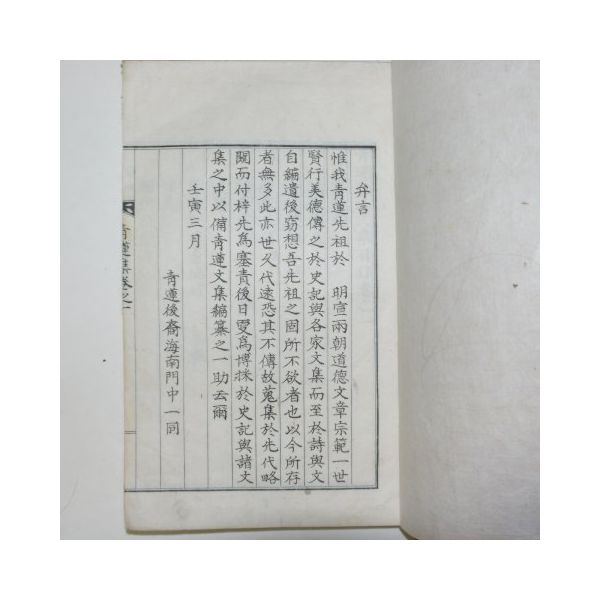 弁言
惟我靑蓮先祖於 明宣兩朝道德文章宗範一世
賢行美德傳之於史記與各家文集而至於詩與文
自編遺後窃想吾先祖之固所不欲者也以今所存
者無多此亦世久代遠恐其不傳故蒐集於先代略
閱而付梓先爲塞責後日更爲博採於史記與諸文
集之中以備靑蓮文集編纂之一助云爾
壬寅三月
靑蓮後裔海南門中一同
靑蓮集卷之一